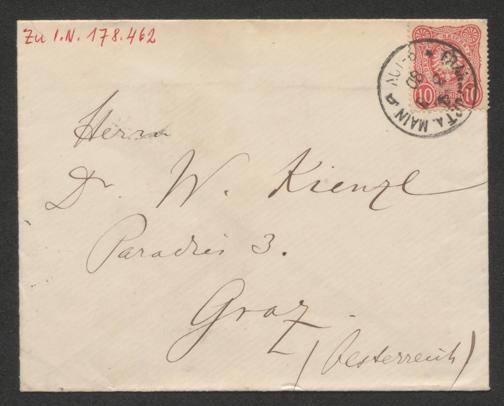 Zu I.N. 178.462
10 10
A. MAIN
Herrn
Dr. W. Kienzl
Paradies 3.
Graz
(Oesterreich)